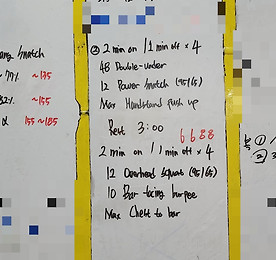 snatch
77% ~135
82% ~155
155~185
② 2 min on / 1 min off × 4
48 Double-under
12 Power Snatch (95/65)
Max Handstand push up
Rest 3:00
6688
2 min on / 1 min off × 4
12 Overhead squat (95/65)
10 Bar-facing burpee
Max Chest to bar